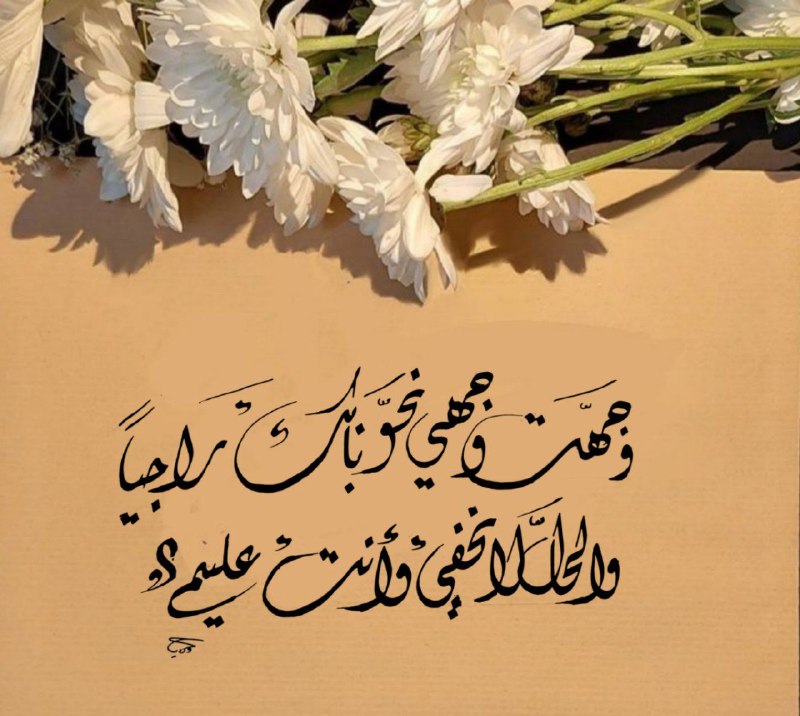 وجهّت وجهي نحوَ بابك راجياً
والحال لا تخفى وأنت عليمُ